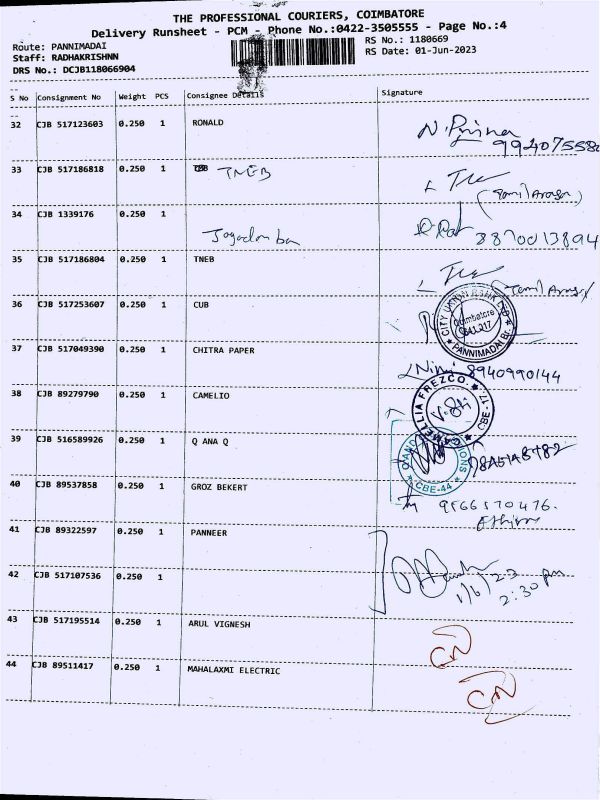 THE PROFESSIONAL COURIERS, COIMBATORE
Delivery Runsheet - PCM - Phone No.:0422-3505555 - Page No.:4
Route: PANNIMADAI
RS No.: 1180669
Staff: RADHAKRISHNN
RS Date: 01-Jun-2023
DRS No.: DCJB118066904
S No Consignment No Weight PCS Consignee Details Signature
32 CJB 517123603 0.250 1 RONALD
99407558
33 CJB 517186818 0.250 1 TNEB
(Tamil Arasan)
34 CJB 1339176 0.250 1 Jagadamba
8870013894
35 CJB 517186804 0.250 1 TNEB
(Tamil Arasa
36 CJB 517253607 0.250 1 CUB
CITY UNION BANK LTD
Coimbatore
641 217
PANNIMADAI Br.
37 CJB 517049390 0.250 1 CHITRA PAPER
8940990144
38 CJB 89279790 0.250 1 CAMELIO
CAMELLIA FREZCO.
CBE-17
39 CJB 516589926 0.250 1 Q ANA Q
CBE-44
40 CJB 89537858 0.250 1 GROZ BEKERT
9566570476.
41 CJB 89322597 0.250 1 PANNEER
42 CJB 517107536 0.250 1
1/6/23
2:30 pm
43 CJB 517195514 0.250 1 ARUL VIGNESH
44 CJB 89511417 0.250 1 MAHALAXMI ELECTRIC